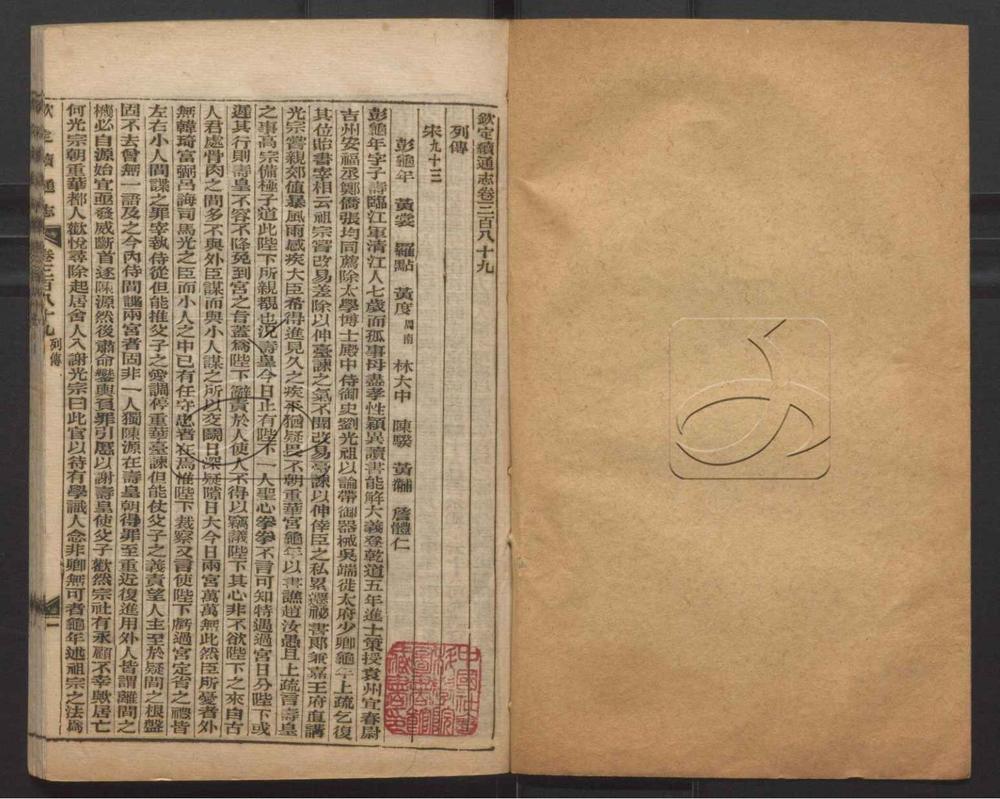 欽定續通志卷三百八十九
列傳
宋九十三
彭龜年 黃裳 羅點 黃度周南 林大中 陳騤 黃黼 詹體仁
彭龜年字子壽臨江軍清江人七歲而孤事母盡孝性穎異讀書能解大義登乾道五年進士第授袁州宜春尉
吉州安福丞鄭僑張均同薦除太學博士殿中侍御史劉光祖以論帶御器械吳端徙太府少卿龜年上疏乞復
其位貽書宰相云祖宗嘗改易差除以伸臺諫之氣不聞改易臺諫以伸倖臣之私累遷祕書郎兼嘉王府直講
光宗嘗親郊值暴風雨感疾大臣希得進見久之疾平猶疑畏不朝重華宮龜年以書譙趙汝愚且上疏言壽皇
之事高宗備極子道此陛下所親覩也況壽皇今日止有陛下一人聖心拳拳不言可知特遇過宮日分陛下或
遲其行則壽皇不容不降免到宮之旨蓋爲陛下辭責於人使人不得以竊議陛下其心非不欲陛下之來自古
人君處骨肉之間多不與外臣謀而與小人謀之所以交鬬日深疑隙日大今日兩宮萬萬無此然臣所憂者外
無韓琦富弼呂誨司馬光之臣而小人之中已有任守忠者在焉惟陛下裁察又言使陛下虧過宮定省之禮皆
左右小人間諜之罪宰執侍從但能推父子之愛調停重華臺諫但能仗父子之義責望人主至於疑間之根盤
固不去曾無一語及之今內侍間諜兩宮者固非一人獨陳源在壽皇朝得罪至重近復進用外人皆謂離間之
機必自源始宜亟發威斷首逐陳源然後肅命鑾輿負罪引慝以謝壽皇使父子歡然宗社有永顧不幸歟居亡
何光宗朝重華都人歡悅尋除起居舍人入謝光宗曰此官以待有學識人念非卿無可者龜年述祖宗之法爲
欽定續通志 卷三百八十九 列傳 一